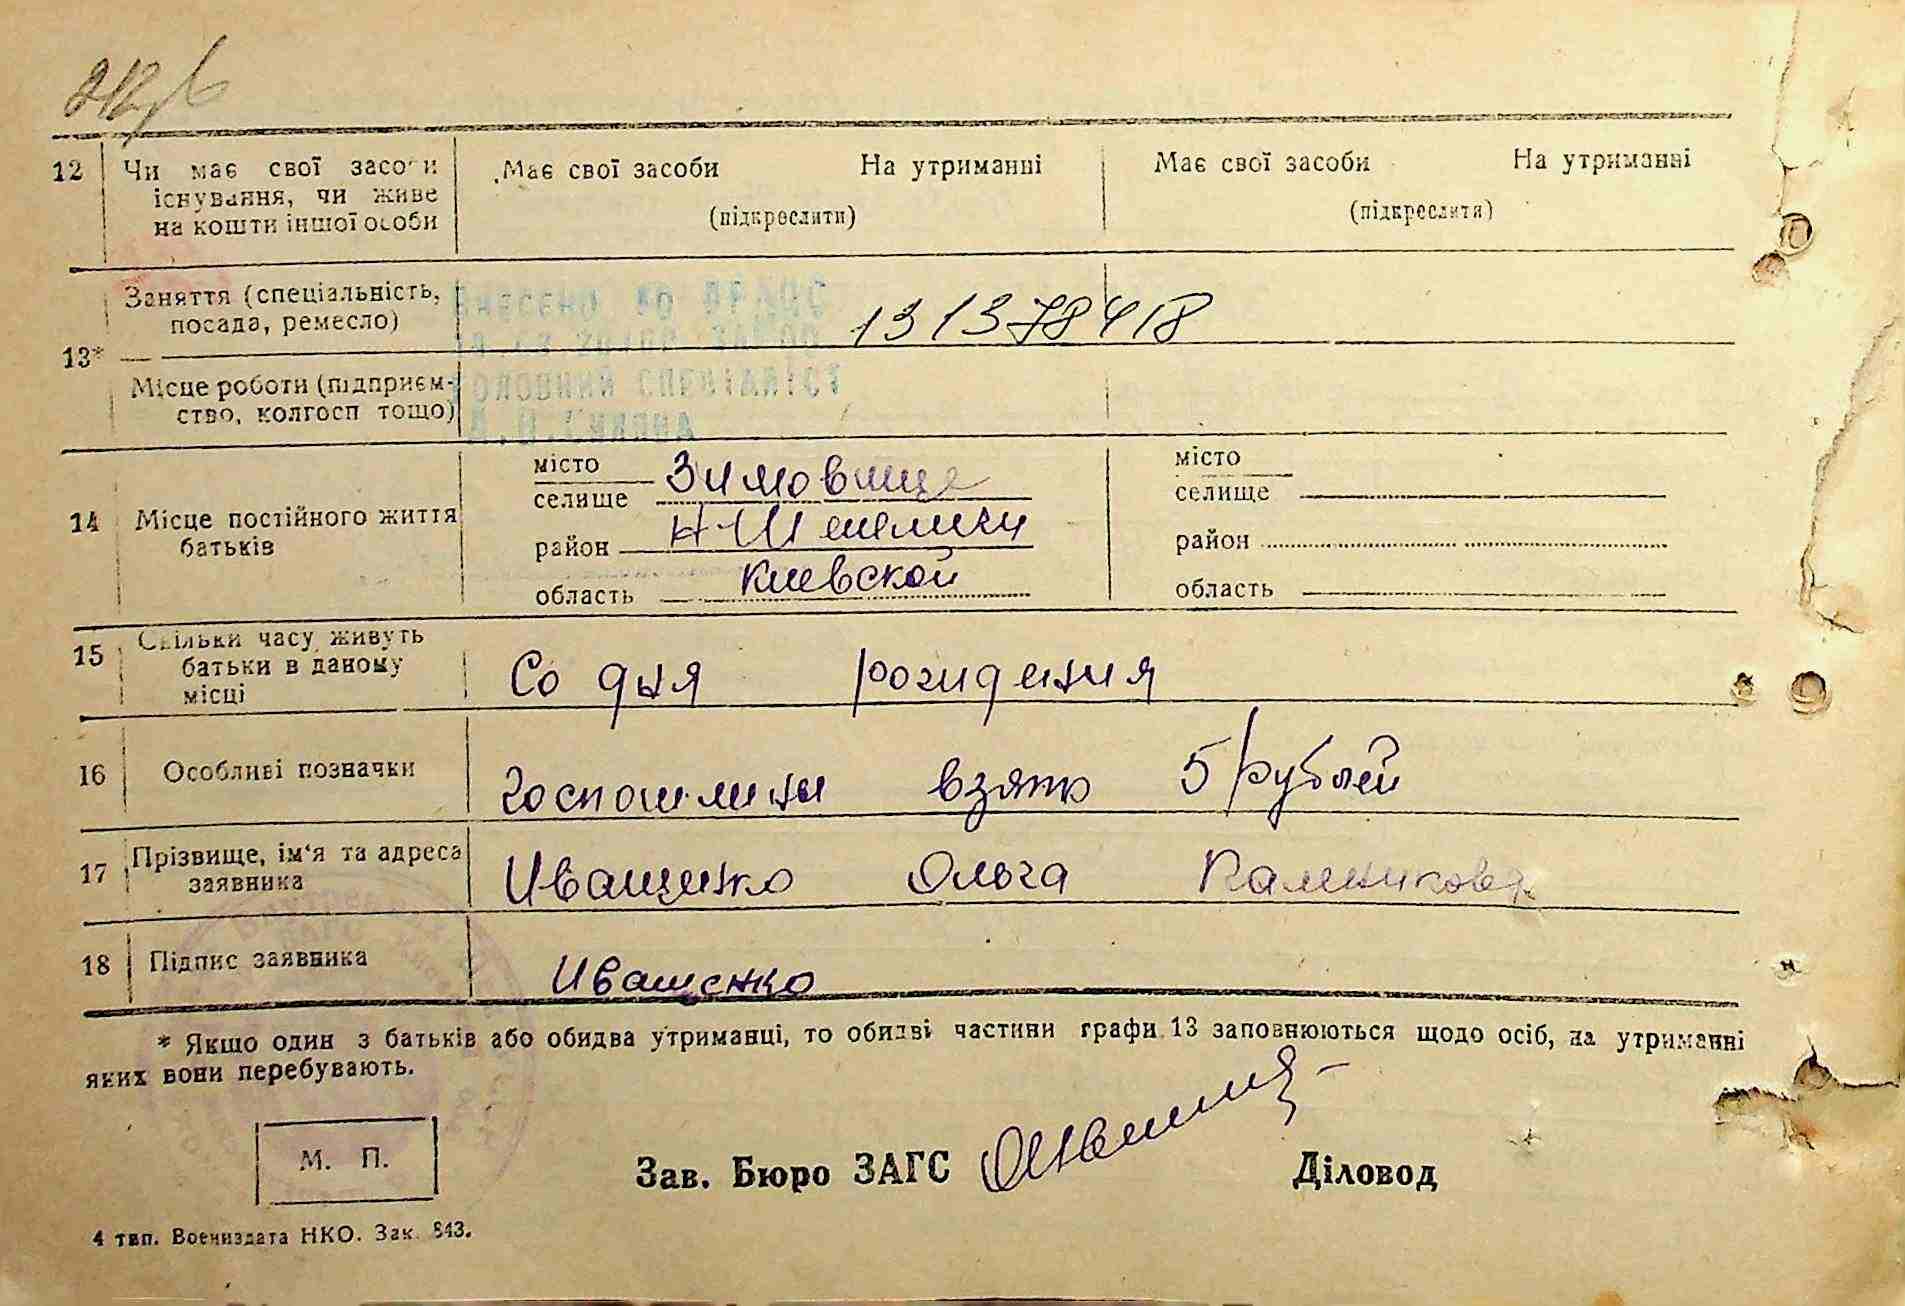 12 Чи має свої засоби Має свої засоби На утриманні Має свої засоби На утриманні
існування, чи живе
на кошти іншої особи (підкреслити) (підкреслити)
Заняття (спеціальність, Внесено до ДРАЦС
посада, ремесло) 131378418
13*
Місце роботи (підприєм- головний спеціаліст
ство, колгосп тощо)
14 Місце постійного життя
батьків
місто
селище Зимовище
район Н-Шепеличи
область Киевской
місто
селище
район
область
15 Скільки часу живуть
батьки в даному
місці
Со дня рождения
16 Особливі позначки Госпошлини взято 5 рублей
17 Прізвище, ім'я та адреса
заявника
Иващенко Ольга
18 Підпис заявника Иващенко
* Якщо один з батьків або обидва утриманці, то обидві частини графи 13 заповнюються щодо осіб, на утриманні
яких вони перебувають.
М. П.
Зав. Бюро ЗАГС Діловод
4 тип. Воениздата НКО. Зак. 843.